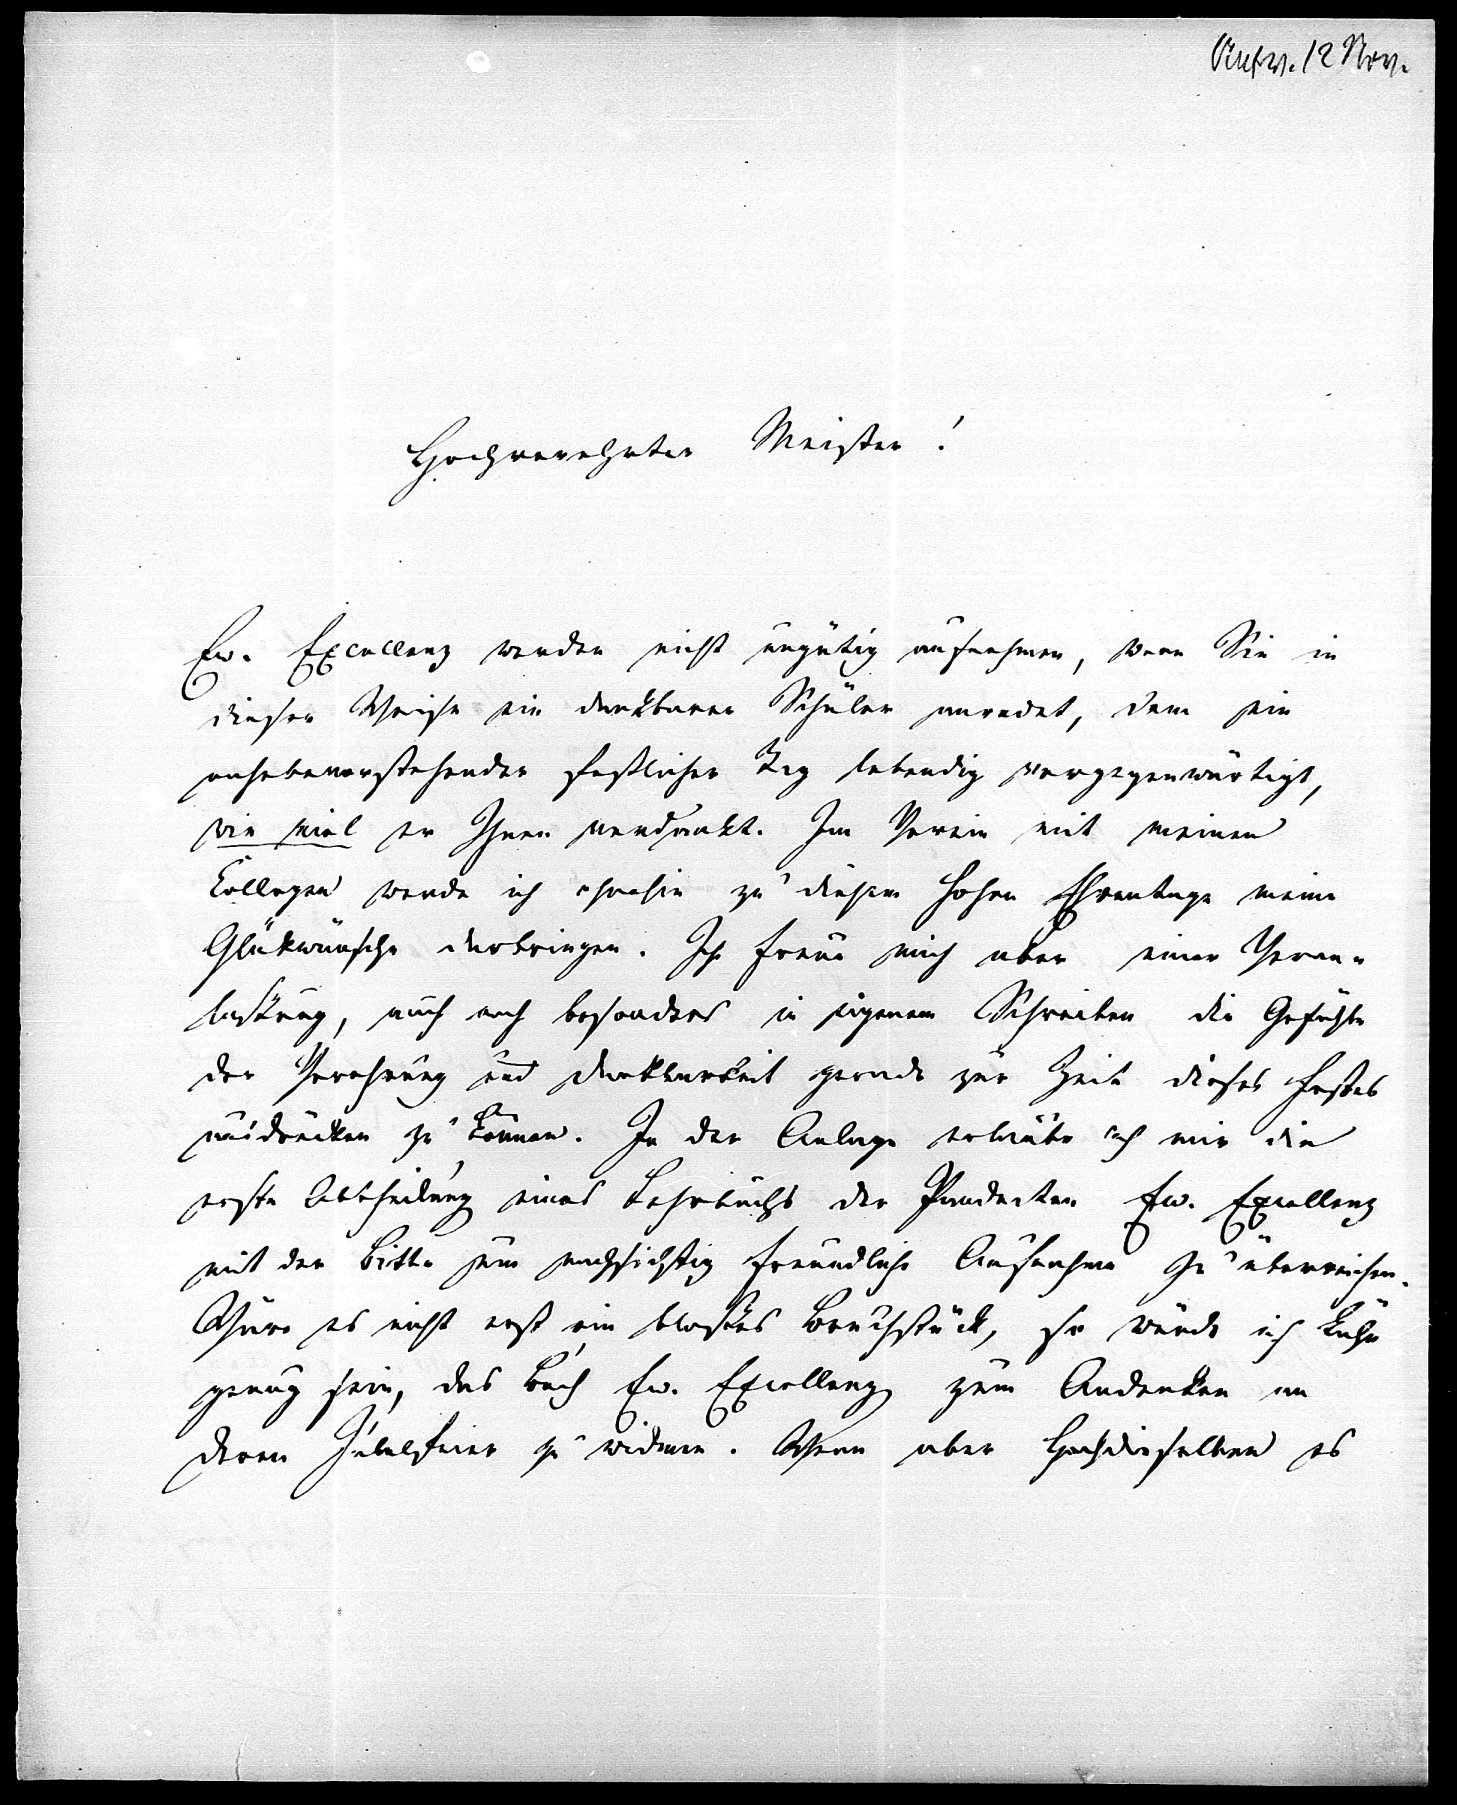 Antw. 12 Nov.
Hochverehrter Meister!
Ew. Excellenz werden nicht ungütig aufnehmen, wenn Sie in
dieser Weise ein dankbarer Schüler anredet, dem ein
nahebevorstehender festlicher Tag lebendig vergegenwärtigt,
wie viel er Ihnen verdankt. Im Verein mit meinen
Collegen werde ich ohnehin zu diesem hohen Ehrentage meine
Glükwünsche darbringen. Ich freue mich aber einer Veran-
lassung, auch noch besonders in eigenem Schreiben die Gefühle
der Verehrung und Dankbarkeit gerade zur Zeit dieses Festes
ausdrücken zu können. In der Anlage erlaube ich mir die
erste Abtheilung eines Lehrbuchs der Pandecten Ew. Excellenz
mit der Bitte um nachsichtig freundliche Aufnahme zu überreichen.
Wäre es nicht erst ein bloßes Bruchstück, so würde ich kühn
genug sein, das Buch Ew. Excellenz zum Andenken an
deren Jubelfeier zu widmen. Wenn aber Hochdieselben es